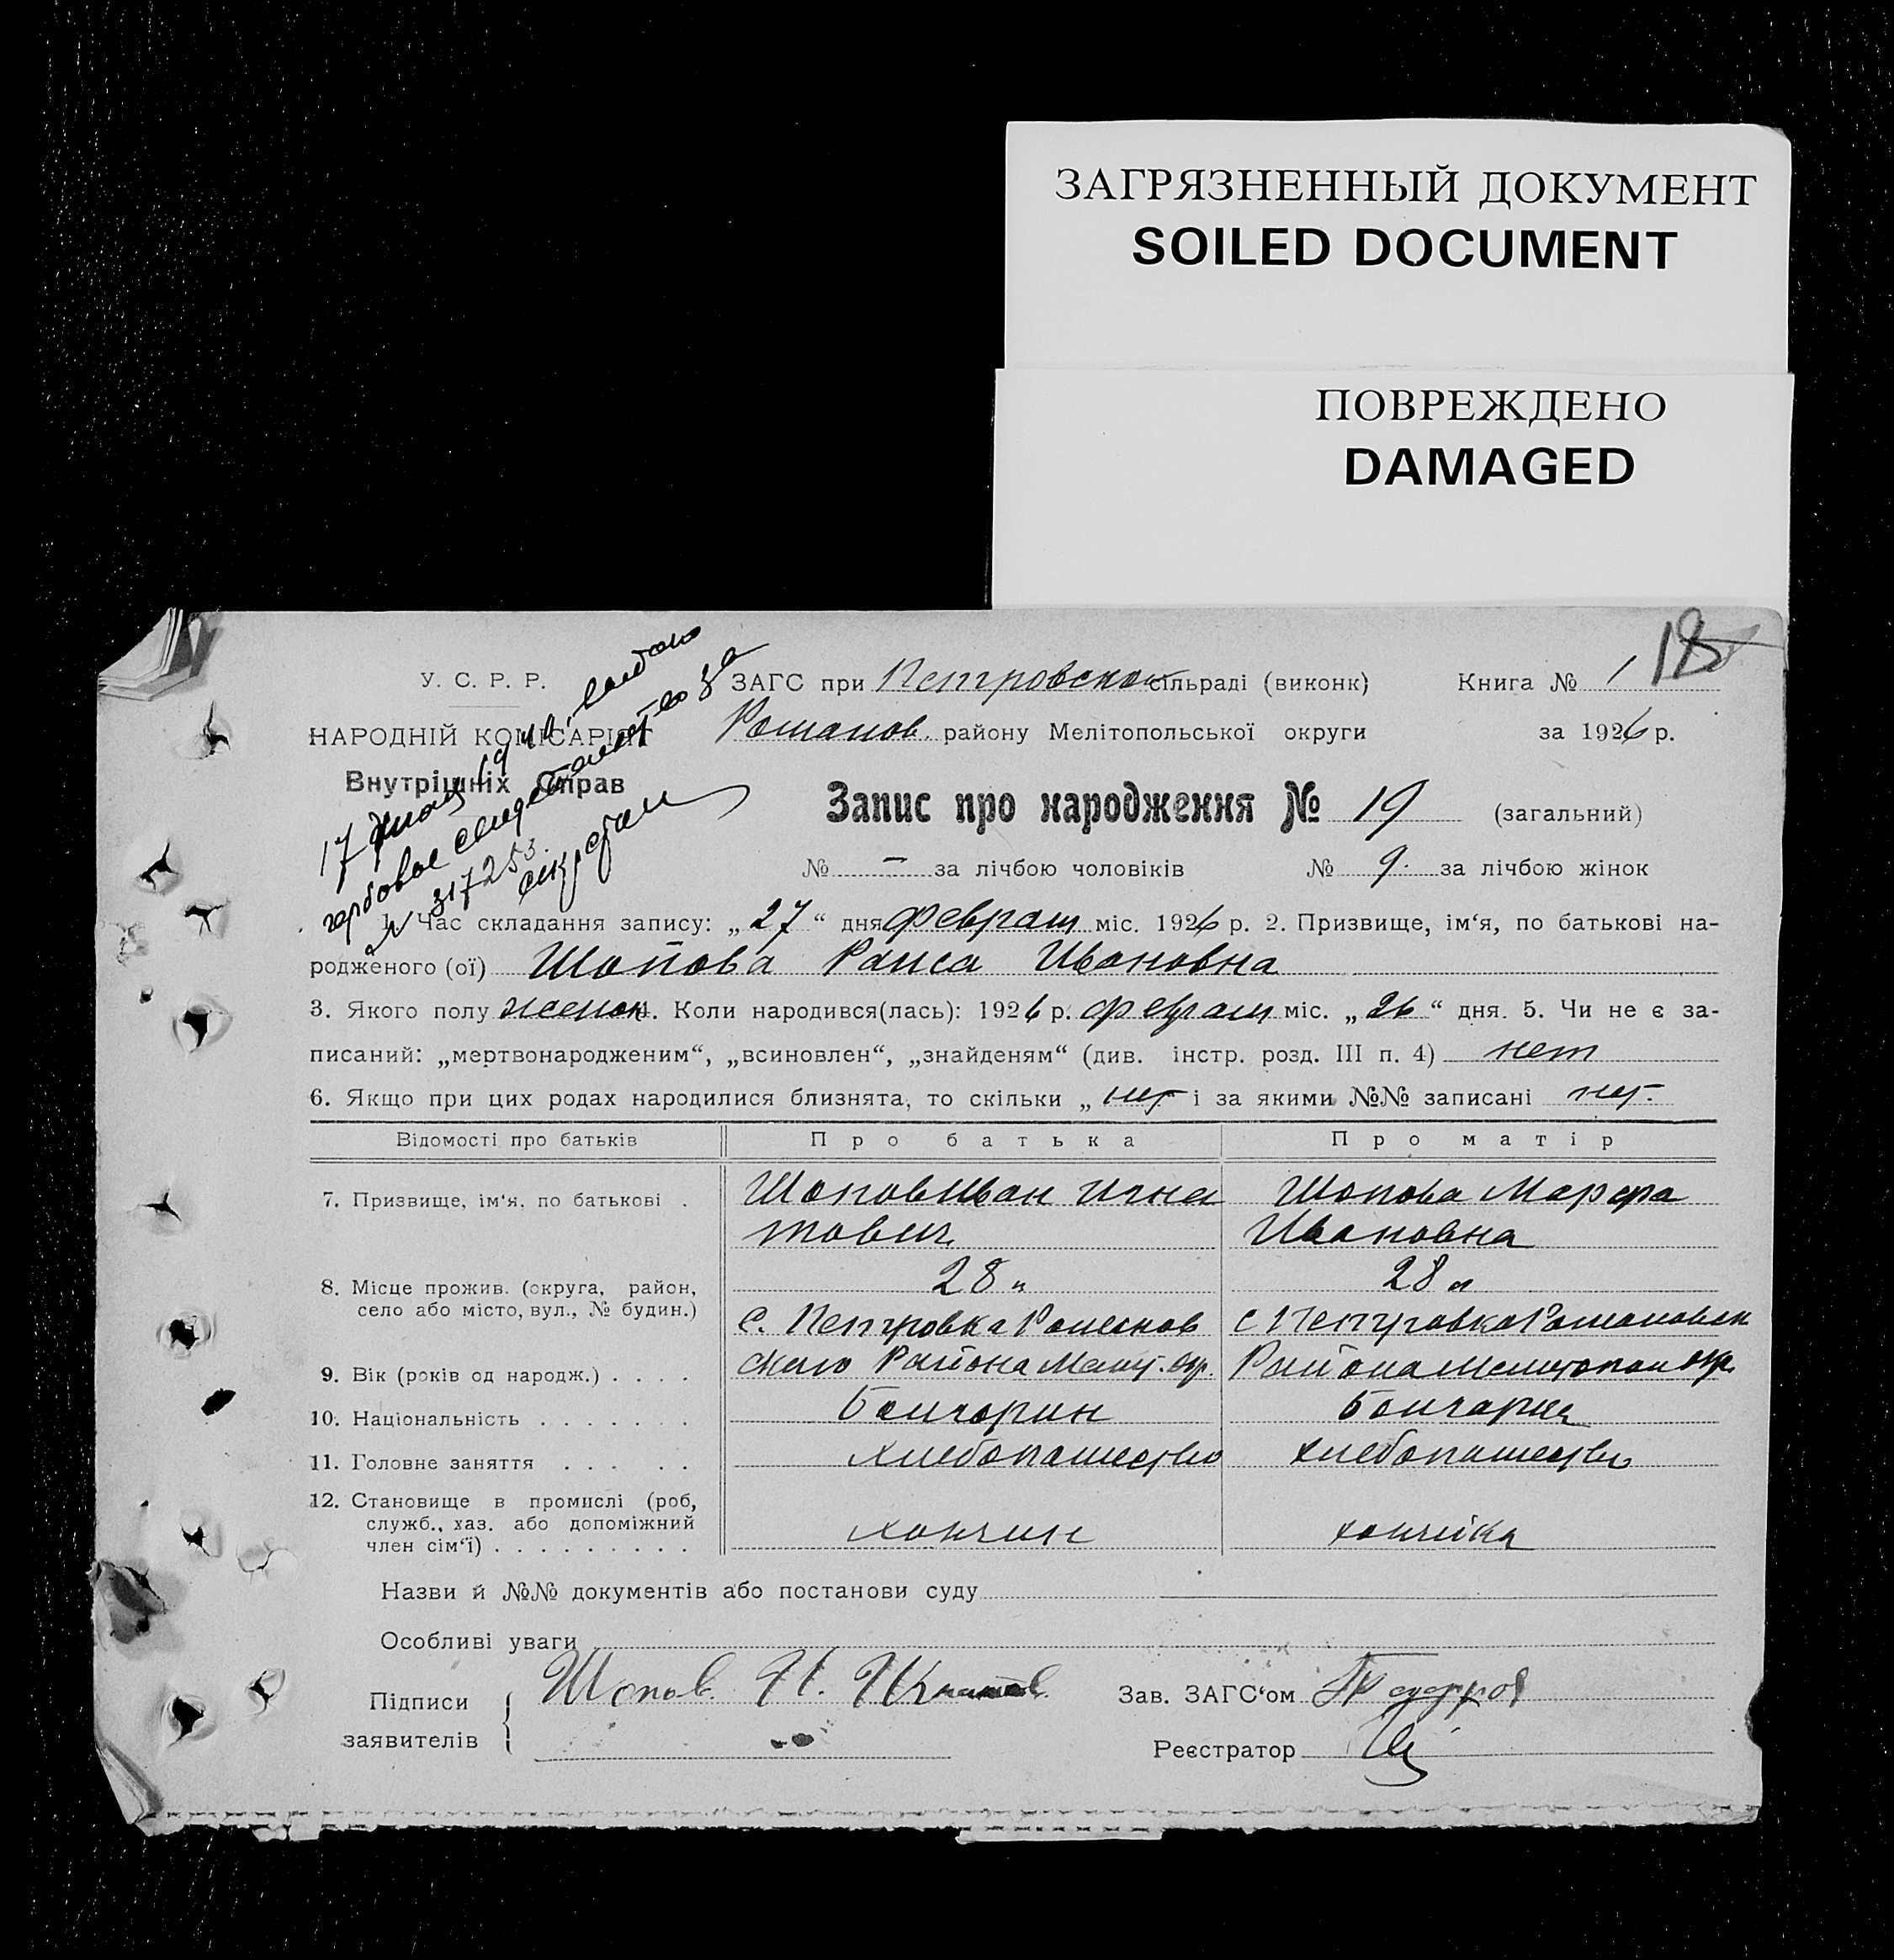 ЗАГРЯЗНЕННЫЙ ДОКУМЕНТ
SOILED DOCUMENT
ПОВРЕЖДЕНО
DAMAGED
18
У. С. Р. Р.
НАРОДНІЙ КОМІСАРІЯТ
Внутрішніх Справ
17 1940 выдано
гербовое свидетельство за
№ 317253.
ЗАГС при Петровской сільраді (виконк)
Книга № 1
Романов. району Мелітопольської округи
за 1926 р.
Запис про народження № 19 (загальний)
№ — за лічбою чоловіків № 9. за лічбою жінок
1. Час складання запису: „27“ дня февраля міс. 1926 р. 2. Призвище, ім‘я, по батькові на-
родженого (ої) Шопова Раиса Ивановна
3. Якого полу женск. Коли народився(лась): 1926 р. февраля міс. „26“ дня. 5. Чи не є за-
писаний: „мертвонародженим“, „всиновлен“, „знайденям“ (див. інстр. розд. III п. 4) нет
6. Якщо при цих родах народилися близнята, то скільки „ нет і за якими №№ записані нет.
Відомості про батьків
Про батька
Про матір
7. Призвище, ім‘я, по батькові .
Шопов Иван Игна
Шопова Марфа
тович
Ивановна
28 л
28 л
8. Місце прожив. (округа, район,
село або місто, вул., № будин.)
с. Петровка Романов
с Петровка Романовск
9. Вік (років од народж.) . . . .
ского Района Мелит. окр.
Района Мелитопол окр.
10. Національність . . . . . . .
Болгарин
Болгарка
11. Головне заняття . . . . .
хлебопашество
хлебопашество
12. Становище в промислі (роб,
служб., хаз. або допоміжний
член сім‘ї) . . . . . . . . .
Назви й №№ документів або постанови суду
Особливі уваги
Підписи
заявителів
Шопов. И. Игнатов.
Зав. ЗАГС‘ом
Реєстратор